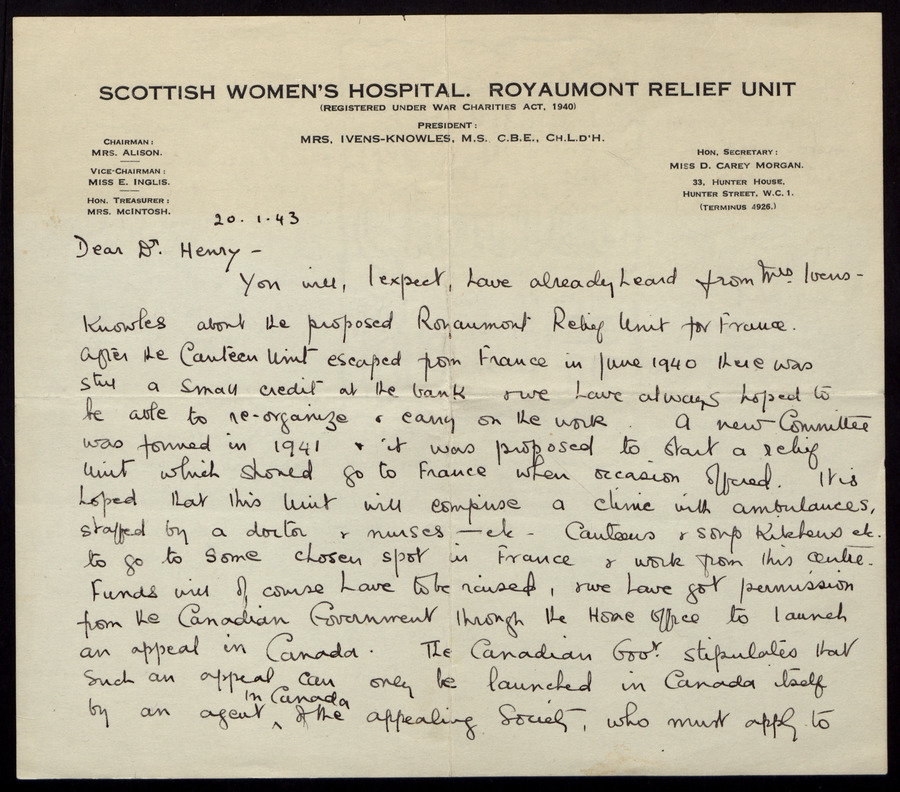 SCOTTISH WOMEN'S HOSPITAL. ROYAUMONT RELIEF UNIT
(REGISTERED UNDER WAR CHARITIES ACT, 1940)
PRESIDENT:
MRS, IVENS-KNOWLES, M.S. C.B.E., CH.L.D'H.
CHAIRMAN:
MRS. ALISON.
VICE-CHAIRMAN:
MISS E. INGLIS.
HON. TREASURER:
MRS. MCINTOSH.
HON, SECRETARY:
MISS D. CAREY MORGAN.
33, HUNTER HOUSE,
HUNTER STREET, W.C.1.
(TERMINUS 4926.)
20.1.43
Dear Dr. Henry –
You will, I expect, have already heard from Mrs. Ivens-
Knowles about the proposed Royaumont Relief Unit for France.
After the Canteen Unit escaped from France in June 1940 there was
still a small credit at the bank & we have always hoped to
be able to re-organize & carry on the work. A new Committee
was formed in 1941 & it was proposed to start a relief
Unit which should go to France when occasion offered. It is
hoped that this Unit will comprise a clinic with ambulances,
staffed by a doctor & nurses – etc – Canteens & soup Kitchens etc.
to go to some chosen spot in France & work from this centre.
Funds will of course have to be raised, & we have got permission
from the Canadian Government through the Home Office to launch
an appeal in Canada. The Canadian Govt. stipulates that
such an appeal can only be launched in Canada itself
by an agent in Canada of the appealing Society, who must apply to